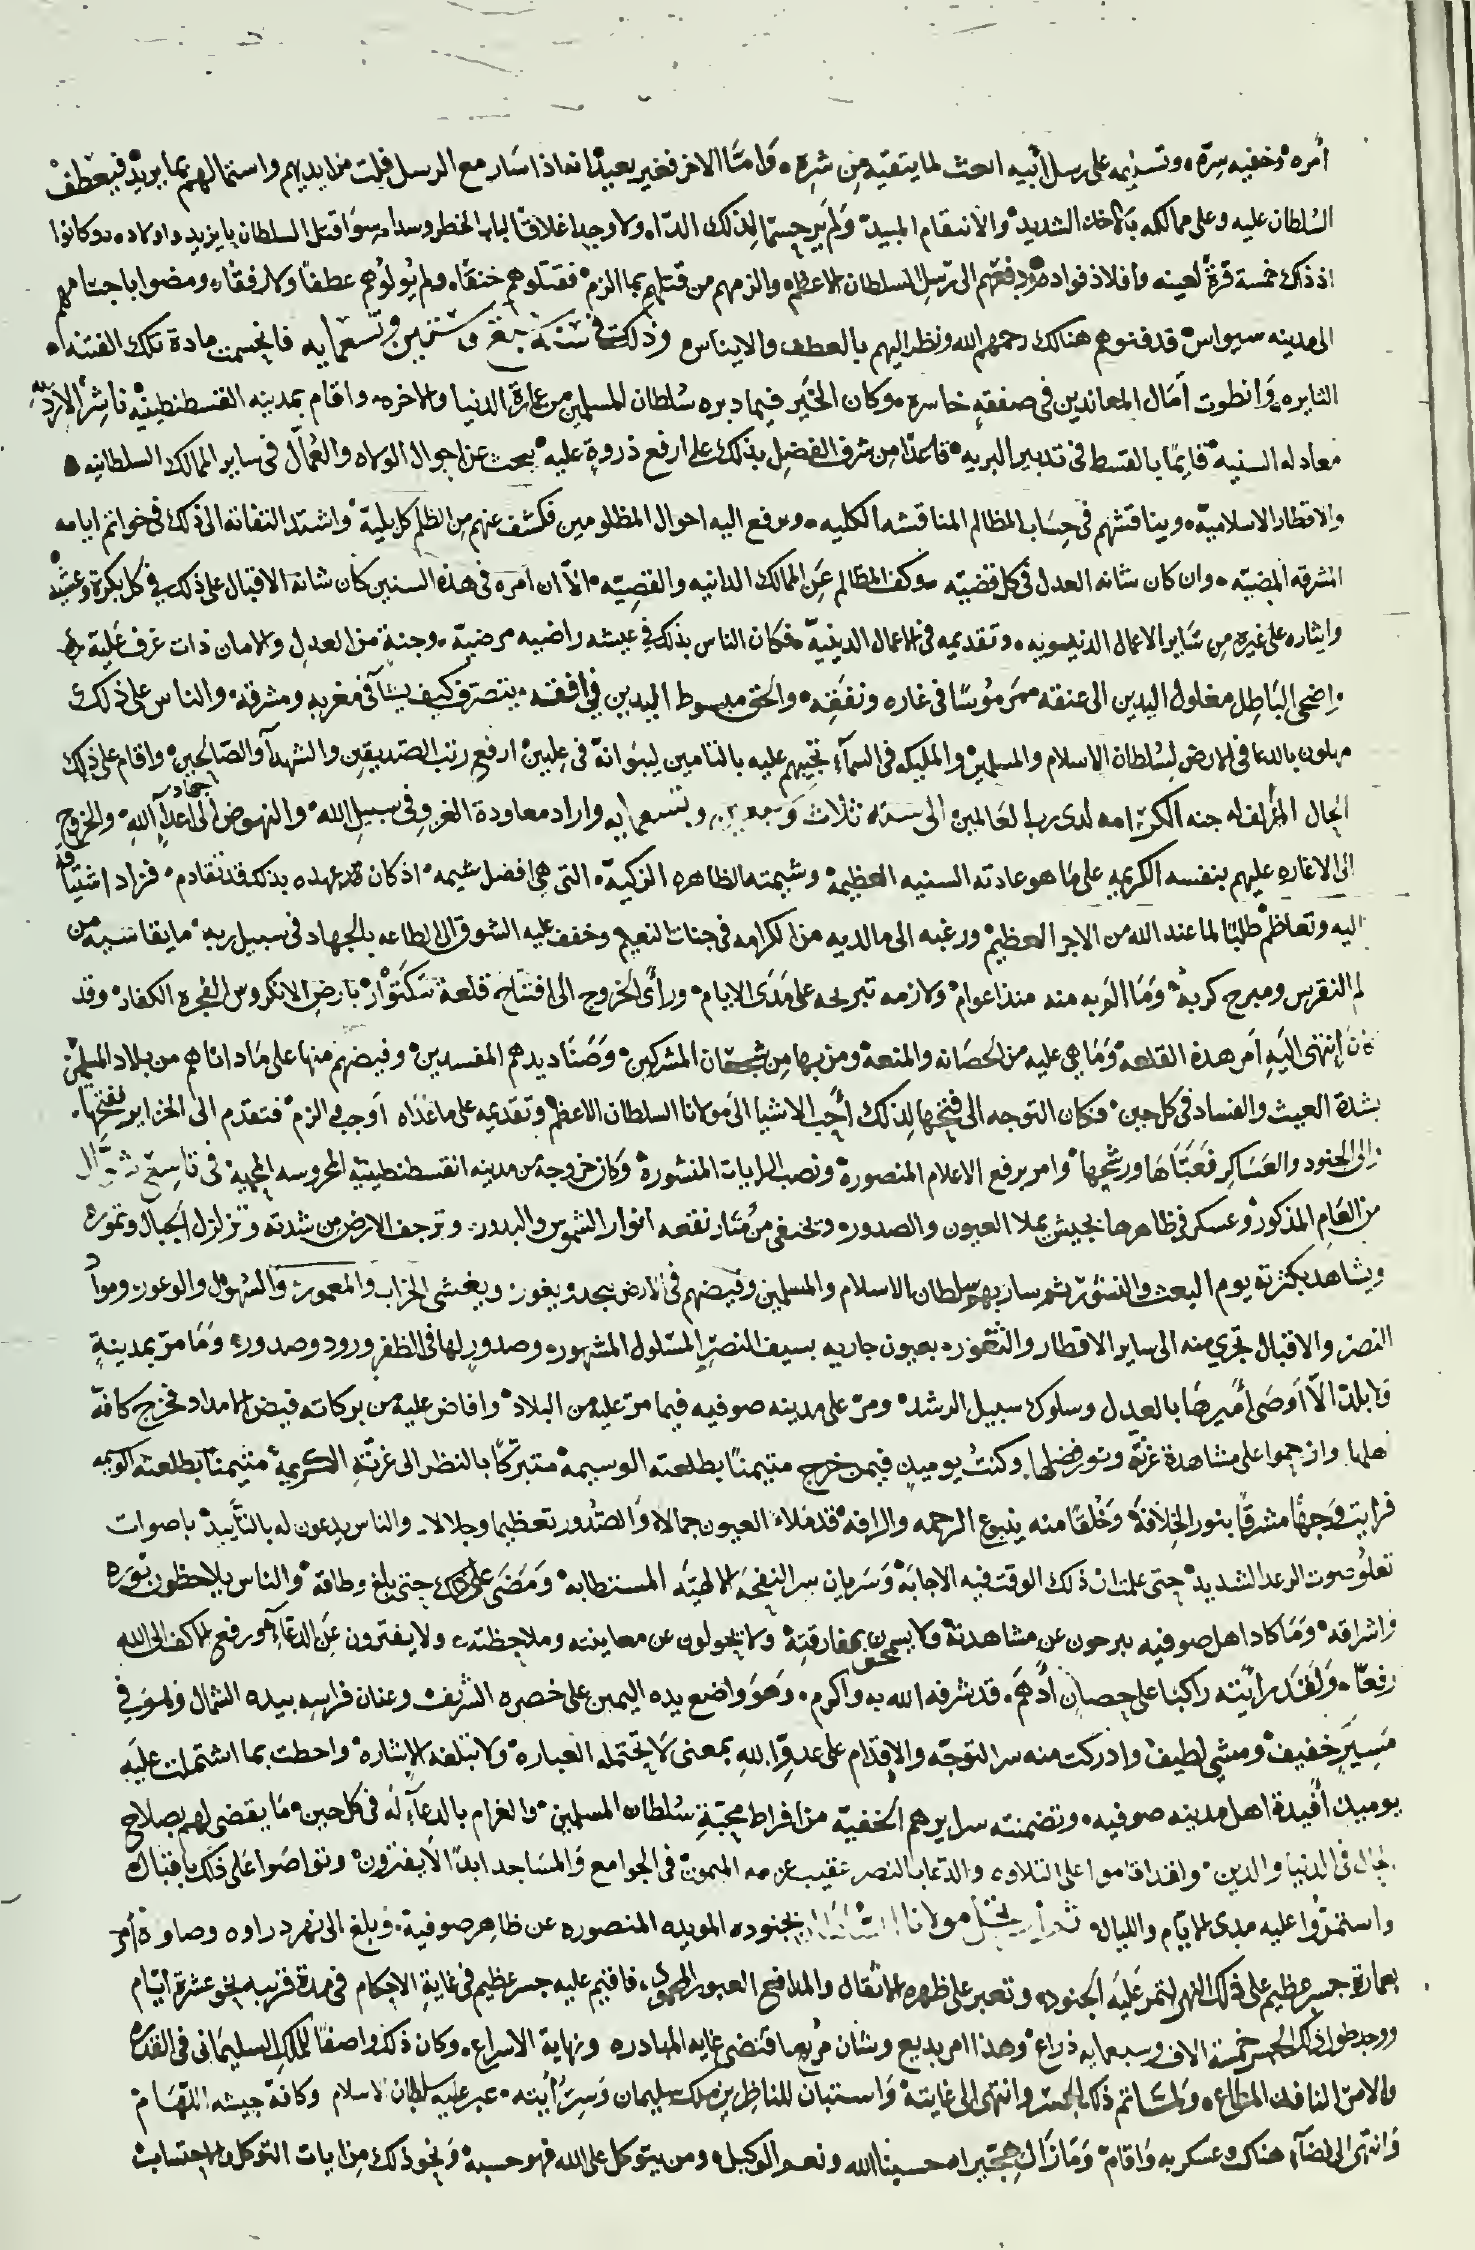 أمره وخفيه سره وتسليمه على رسل أبيه لما يتقيه من شره وأما الآخر فغير بعيد انفاذ اسار مع الرسل من ايديهم واستمالهم بما يريد فيعطف
السلطان عليه وعلى ممالكه بالاخذ الشديد والانتقام المبيد ولم ير حسما لذلك الداء ولا وجد اغلاقا لباب الخطر وسدا سوا قتل السلطان بايزيد واولاده وكانوا
اذ ذاك خمسة قرة لعينه وافلاذ فواده ودفعهم الى رسل السلطان الاعظم والزمهم من قتلهم بما الزم فقتلوهم خنقا ولم يولوهم عطفا ولا رفقا ومضوا باجسامهم
الى مدينه سيواس فدفنوهم هنالك رحمهم الله ونظر اليهم بالعطف والايناس وذلك في سنة وستين وتسعمايه فانحسمت مادة تلك الفتنه
الثايره وانطوت آمال المعاندين في صفقه خاسره وكان الخير فيما دبره سلطان المسلمين من عمارة الدنيا والاخره واقام بمدينه القسطنطينيه ناشرا
معادله السنيه قايما بالقسط في تدبير البريه قاعدا من شرف الفضل بذلك على ارفع ذروة عليه يبحث عن احوال الولاه والعمال في ساير الممالك السلطانيه
والاقطار الاسلاميه ويناقشهم في حساب المظالم المناقشه الكليه ويرفع اليه احوال المظلومين فكشف عنهم من الظلم كل بليه واشتد التفاته الى ذلك في خواتم ايامه
المشرقه المضيه وان كان شانه العدل في كل قضيه وكف المظالم عن الممالك الدانيه والقصيه الا ان امره في هذه السنين كان شانه الاقبال على ذلك في كل بكرة وعشيه
وايثاره على غيره من ساير الاعمال الدنيويه وتقديمه في الاعمال الدينيه فكان الناس بذلك في عيشه راضيه مرضيه وجنة من العدل والامان ذات غرف عليه
واضحى الباطل مغلول اليدين الى عنقه في غاره ونفقه والحق مبسوط اليدين في افقه يتصرف كيف يشا في مغربه ومشرقه والناس على ذلك
مهلون بالدعا في الارض لسلطان الاسلام والمسلمين والمليكه في السماء تجيبهم عليه بالتامين ليبوانه في عليين ارفع رتب الصديقين والشهدا والصالحين واقام على ذلك
الحال المزلف له جنه الكرامه لدى رب العالمين الى سنه ثلاث وسبعين وتسعمايه واراد معاودة الغزو في سبيل الله والنهوض الى جهاد اعداء الله والخروج
الى الاغاره عليهم بنفسه الكريمه على ما هو عادته السنيه العظيمه وشيمته الطاهره الزكيه التي هي افضل شيمه اذ كان عهده بذلك قد تقادم فزاد اشتياقه
اليه وتعاظم طلبا لما عند الله من الاجر العظيم ورغبه الى ما لديه من الكرامه في جنات النعيم وخفف عليه الشوق الى الطاعه بالجهاد في سبيل ربه ما يقاسيه من
الم النقرس ومبرح كربه وما الم به منه منذ اعوام ولازمه تبريحه على مدى الايام وراى الخروج الى افتتاح قلعة سكتوار بارض الانكروس الفجره الكفار وقد
كان انتهى اليه امر هذه القلعه وما هي عليه من الحصانه والمنعه ومن بها من شجعان المشركين وصناديدهم المفسدين وفيضهم منها على ما داناهم من بلاد المسلمين
بشدة العيث والفساد في كل حين فكان التوجه الى فتحها لذلك احب الاشيا الى مولانا السلطان الاعظم وتقديمه على ما عداه اوجب والزم فتقدم الى الخزاين ففتحها
والى الجنود والعساكر فعباها ورشحها وامر برفع الاعلام المنصورة ونصب الرايات المنشورة وكان خروجه من مدينه القسطنطينيه المحروسه المحميه في تاسع شوال
من العام المذكور وعسكر في ظاهرها بجيش يملا العيون والصدور وتختفي من مثار نقعه انوار الشموس والبدور وترجف الارض من شدته وتزلزل الجبال وتمور
ويشاهد بكثرته يوم البعث والنشور ثم سار بهم سلطان الاسلام والمسلمين وفيضهم في الارض ينجد ويغور ويغشى الخراب والمعمور والسهول والوعور ومواد
النصر والاقبال تجري منه الى ساير الاقطار والثغور بعيون جاريه بسيف النصر المسلول المشهور وصدور لها في الظفر ورود وصدور وما مر بمدينة
ولا بلد الا اوصى اميرها بالعدل وسلوك سبيل الرشد ومر على مدينه صوفيه فيما مر عليه من البلاد وافاض عليه من بركاته فيض الامداد فخرج كافة
اهلها وازدحموا على مشاهدة غرته ونور فضلها وكنت يوميذ فيمن خرج متيمنا بطلعته الوسيمه متبركا بالنظر الى غرته الكريمه متيمنا بطلعته الكريمه
فرايت وجها مشرقا بنور الخلافة وخلقا منه ينبوع الرحمه والرافه قد ملاء العيون جمالا والصدور تعظيما وجلالا والناس يدعون له بالتأييد باصوات
تعلو صوت الرعد الشديد حتى علمت ان ذلك الوقت فيه الاجابه وسريان سر النفحة الالهيه المستطابه ومضى على ذلك حتى بلغ وطاقه والناس يلاحظون نوره
واشراقه وما كاد اهل صوفيه يبرحون عن مشاهدته ولا يسمحون بمفارقته ولا يحولون عن معاينته وملاحظته ولا يفترون عن الدعاء ورفع الاكف الى الله
رفعا ولقد رأيته راكبا على حصان ادهم قد شرفه الله به واكرم وهو واضع يده اليمين على خصره الشريف وعنان فرسه بيده الشمال ولهو في
مسير خفيف ومشي لطيف وادركت منه سر التوجه والاقدام على عدو الله بمعنى لا تحتمله العباره ولا تبلغه الاشاره واحطت بما اشتملت عليه
يوميذ افيدة اهل مدينه صوفيه وتضمنته سرايرهم الخفيه من افراط محبة سلطان المسلمين والغرام بالدعاء له في كل حين وما يقضى لهم بصلاح
الحال في الدنيا والدين ولقد اقاموا على التلاوه والدعا بالنصر عقيب عزمه الميمون في الجوامع والمساجد ابدا لا يفترون وتواصوا على ذلك باقبال
واستمروا عليه مدى الايام والليال ثم مولانا السلطان بجنوده المويده المنصوره عن ظاهر صوفية وبلغ الى نهر دراوه وصاوه امر
بعمارة جسر عظيم على ذلك النهر لتمر عليه الجنود وتعبر على ظهره الاثقال والمدافع العبور المحمود فاقيم عليه جسر عظيم في غاية الاحكام في مدة قريبه نحو عشرة ايام
ووجد طول ذلك الجسر خمسة الاف وسبعمايه ذراع وهذا امر بديع وشان مربع اقتضى غايه المبادره ونهاية الاسراع وكان ذلك واصفا للملك السليماني في القدره
والامر النافذ المطاع ولما تم ذلك الجسر وانتهى الى غايته واستبان للناظرين ملك سليمان وسر آيته عبر عليه سلطان الاسلام وكافة جيشه اللهام
وانتهى الى فضاء هنالك وعسكر به واقام وما زال هجيراه حسبنا الله ونعم الوكيل ومن يتوكل على الله فهو حسبه ونحو ذلك من ايات التوكل والاحتساب